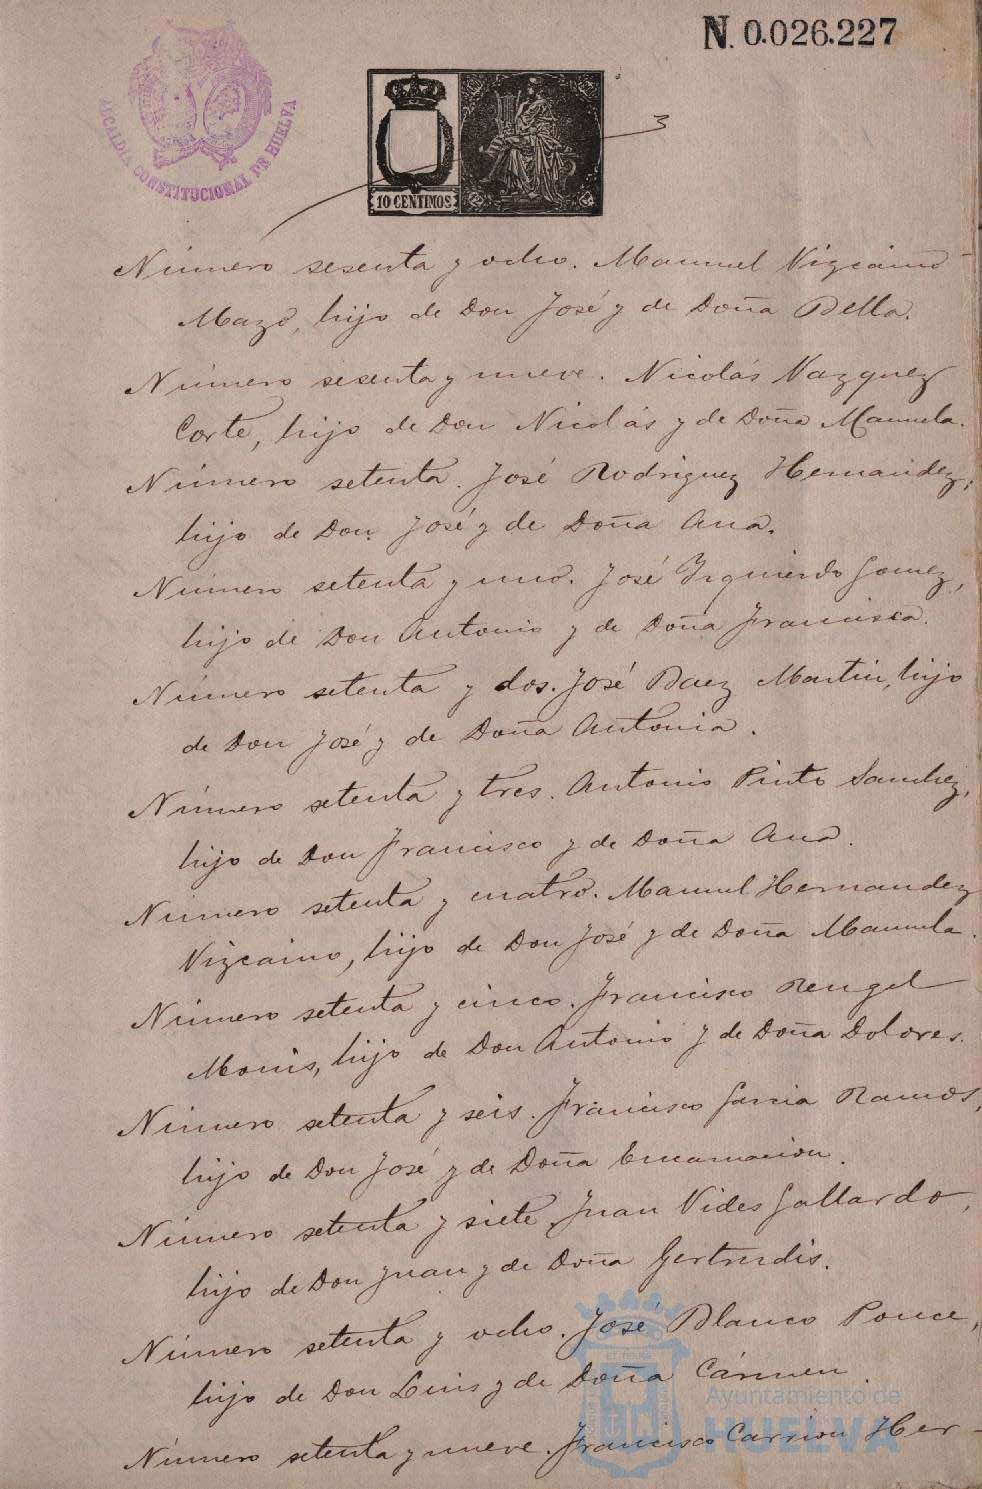 N. 0.026.227
ALCALDIA CONSTITUCIONAL DE HUELVA
10 CENTIMOS
3
Número sesenta y ocho. Manuel Vizcaino
Mazo, hijo de Don José y de Doña Bella.
Número sesenta y nueve. Nicolás Vazquez
Corte, hijo de Don Nicolás y de Doña Manuela.
Número setenta. José Rodriguez Hernandez,
hijo de Don José y de Doña Ana.
Número setenta y uno. José Izquierdo Gomez,
hijo de Don Antonio y de Doña Francisca.
Número setenta y dos. José Baez Martin, hijo
de Don José y de Doña Antonia.
Número setenta y tres. Antonio Pinto Sanchez,
hijo de Don Francisco y de Doña Ana.
Número setenta y cuatro. Manuel Hernandez
Vizcaino, hijo de Don José y de Doña Manuela.
Número setenta y cinco. Francisco Rengel
Monis, hijo de Don Antonio y de Doña Dolores.
Número setenta y seis. Francisco Garcia Ramos,
hijo de Don José y de Doña Encarnacion.
Número setenta y siete, Juan Vides Gallardo,
hijo de Don Juan y de Doña Gertrudis.
Número setenta y ocho. José Blanco Ponce,
hijo de Don Luis y de Doña Cármen.
Número setenta y nueve. Francisco Carrion Her-
Ayuntamiento de
HUELVA